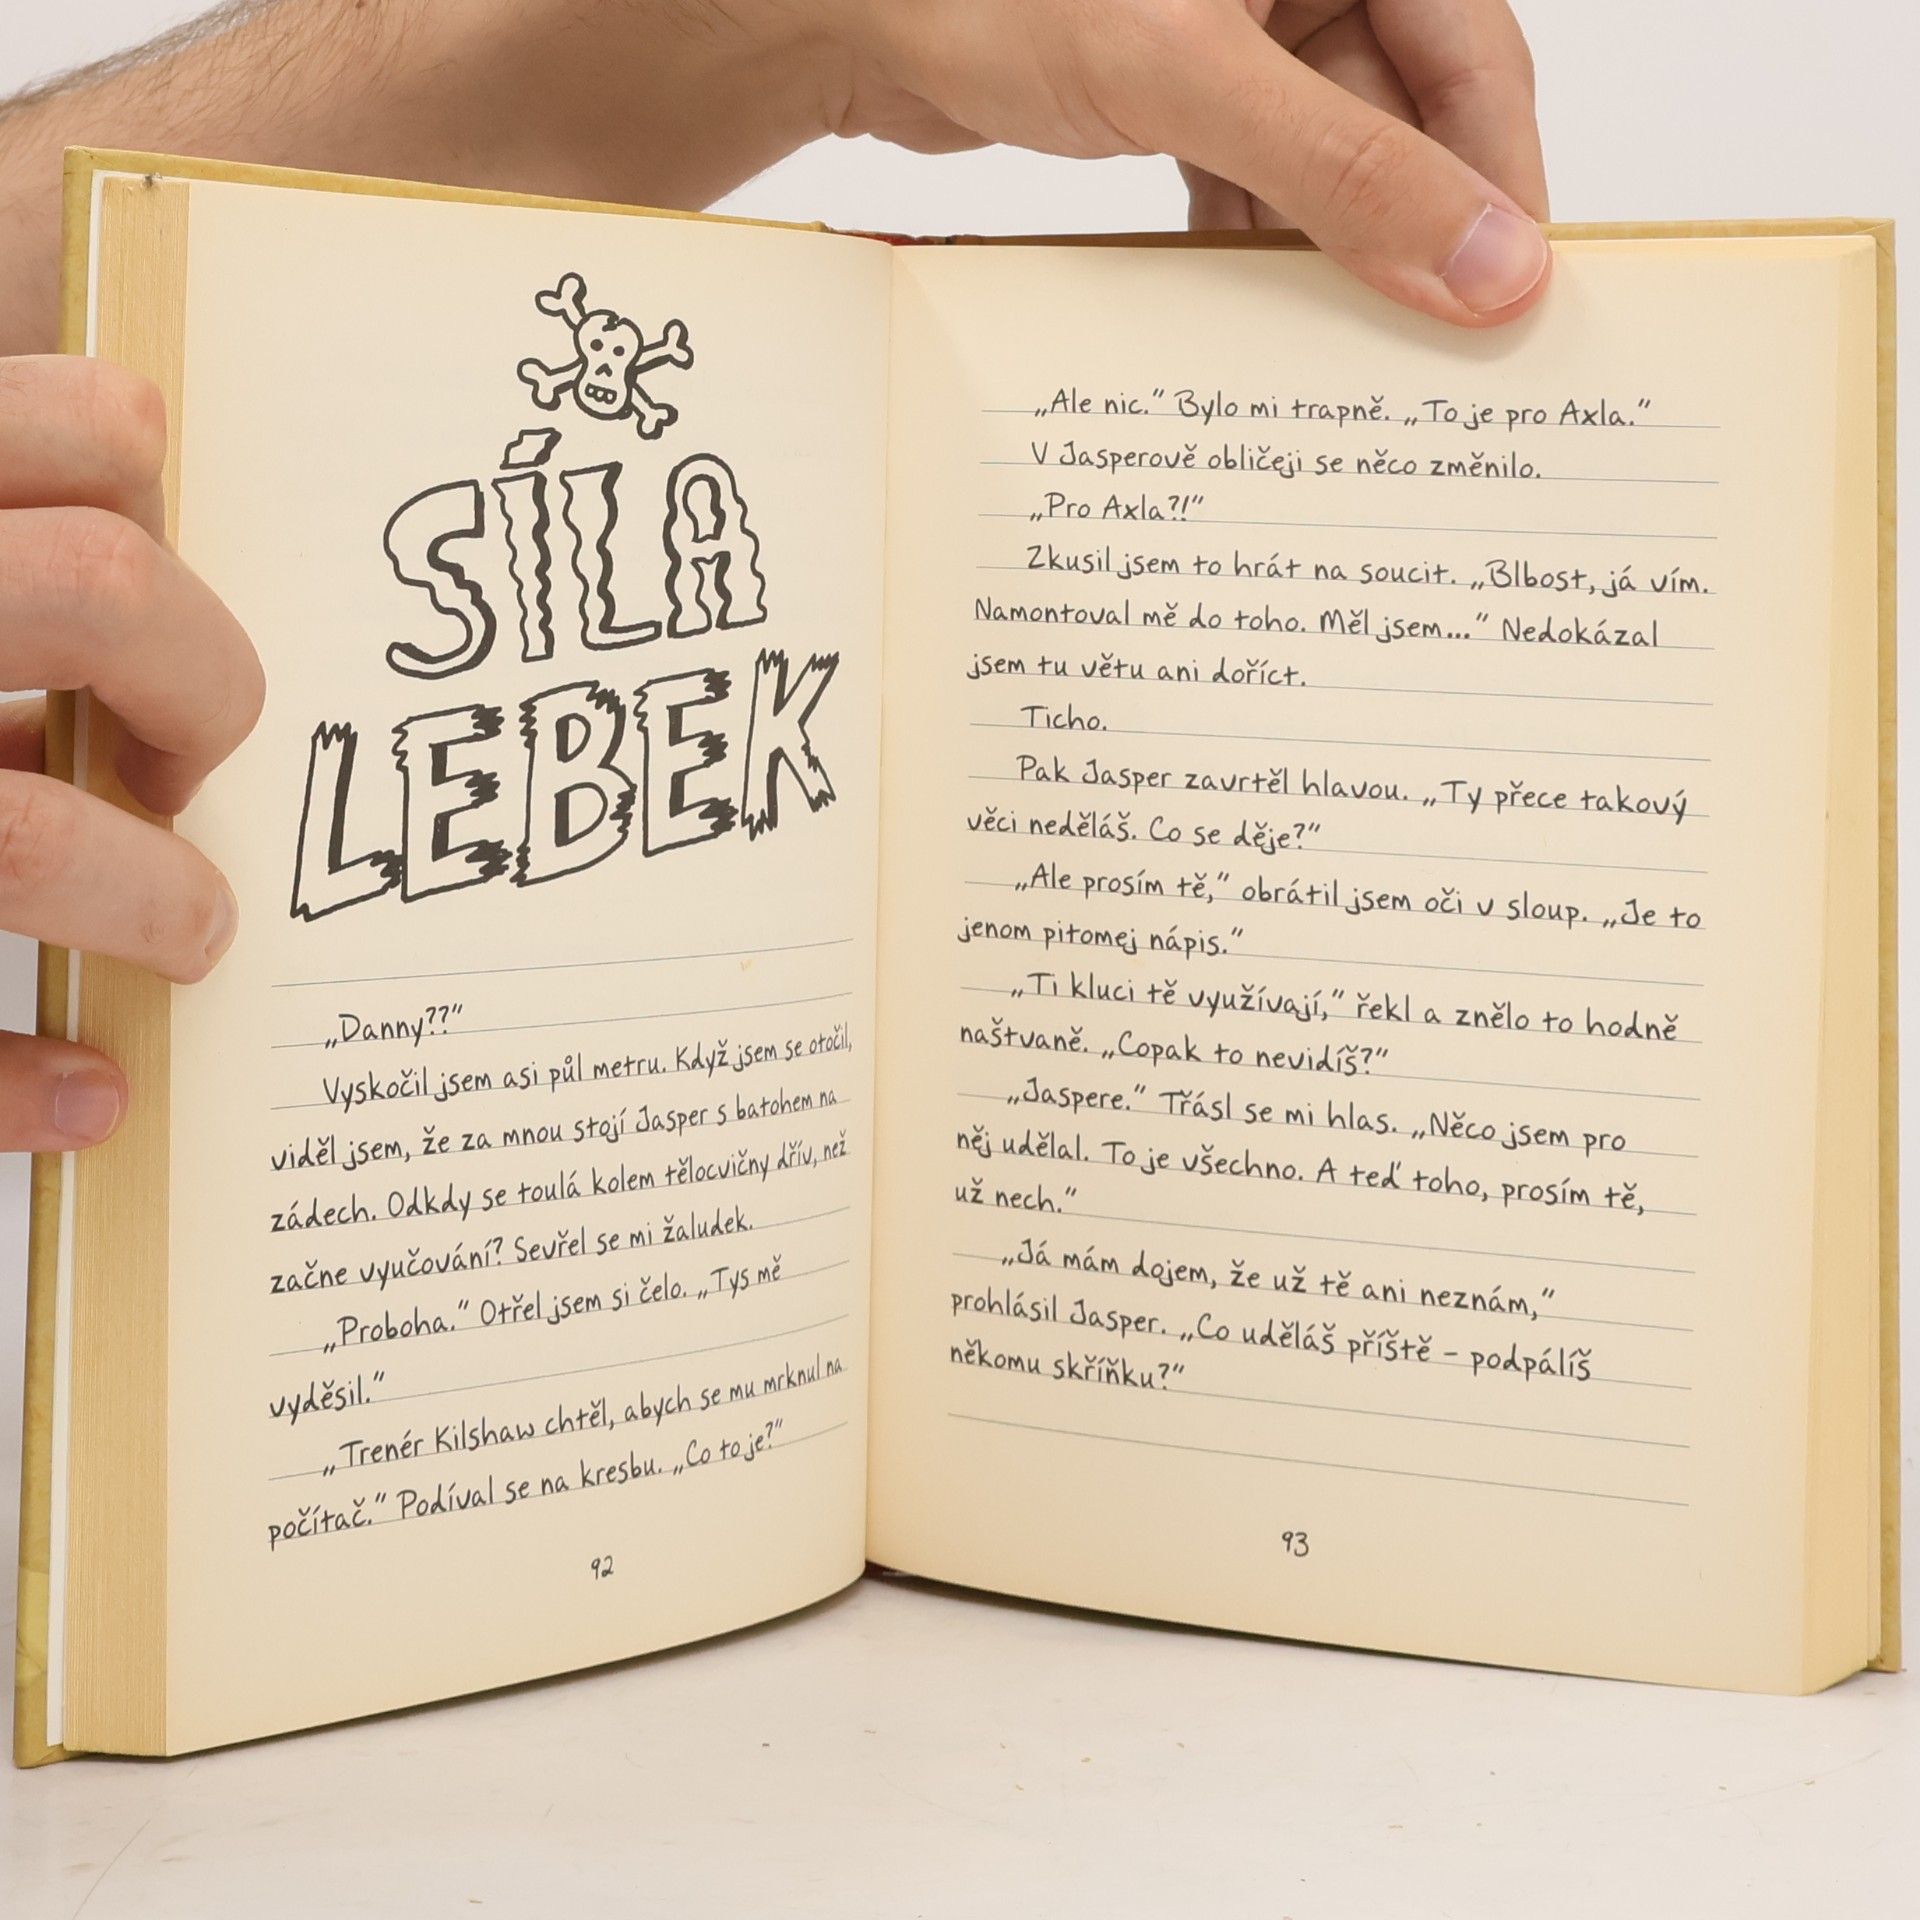 SÍLA
LEBEK
„Danny??“
Vyskočil jsem asi půl metru. Když jsem se otočil,
viděl jsem, že za mnou stojí Jasper s batohem na
zádech. Odkdy se toulá kolem tělocvičny dřív, než
začne vyučování? Sevřel se mi žaludek.
„Proboha.“ Otřel jsem si čelo. „Tys mě
vyděsil.“
„Trenér Kilshaw chtěl, abych se mu mrknul na
počítač.“ Podíval se na kresbu. „Co to je?“
92
„Ale nic.“ Bylo mi trapně. „To je pro Axla.“
V Jasperově obličeji se něco změnilo.
„Pro Axla?!“
Zkusil jsem to hrát na soucit. „Blbost, já vím.
Namontoval mě do toho. Měl jsem...“ Nedokázal
jsem tu větu ani doříct.
Ticho.
Pak Jasper zavrtěl hlavou. „Ty přece takový
věci neděláš. Co se děje?“
„Ale prosím tě,“ obrátil jsem oči v sloup. „Je to
jenom pitomej nápis.“
„Ti kluci tě využívají,“ řekl a znělo to hodně
naštvaně. „Copak to nevidíš?“
„Jaspere.“ Třásl se mi hlas. „Něco jsem pro
něj udělal. To je všechno. A teď toho, prosím tě,
už nech.“
„Já mám dojem, že už tě ani neznám,“
prohlásil Jasper. „Co uděláš příště – podpálíš
někomu skříňku?“
93